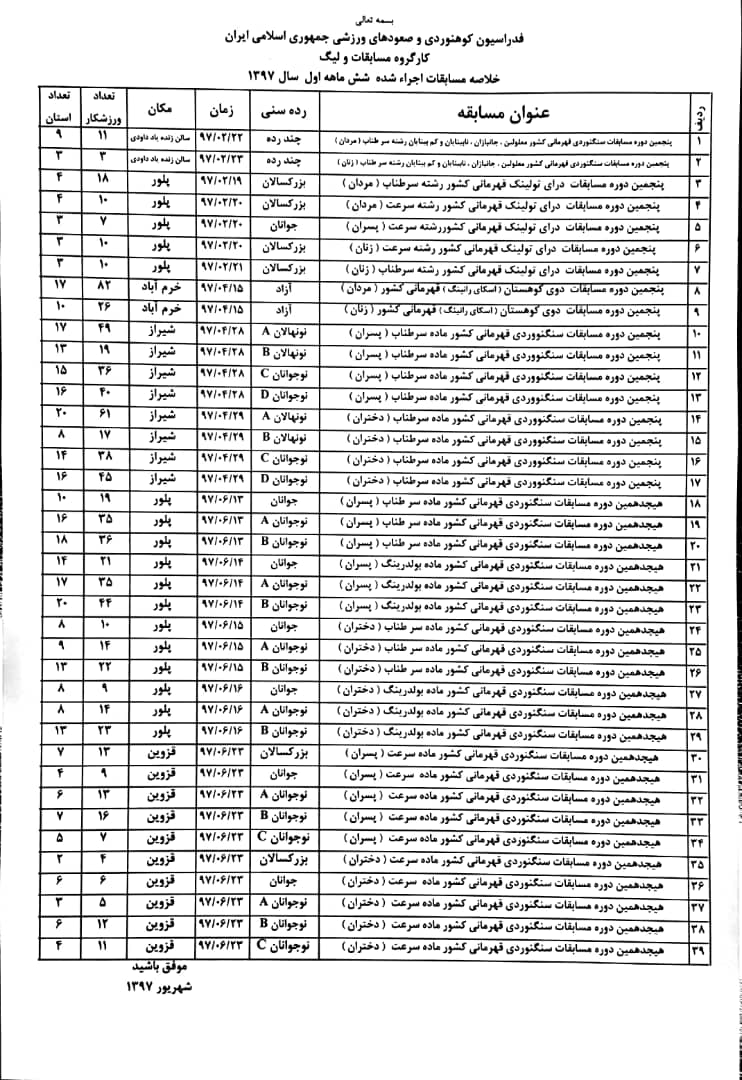 بسمه تعالی
فدراسیون کوهنوردی و صعودهای ورزشی جمهوری اسلامی ایران
کارگروه مسابقات و لیگ
خلاصه مسابقات اجراء شده شش ماهه اول سال ۱۳۹۷
ردیف عنوان مسابقه رده سنی زمان مکان تعداد ورزشکار تعداد استان
۱ پنجمین دوره مسابقات سنگنوردی قهرمانی کشور معلولین ، جانبازان ، نابینایان و کم بینایان رشته سر طناب ( مردان ) چند رده ۹۷/۰۲/۲۲ سالن زنده یاد داودی ۱۱ ۹
۲ پنجمین دوره مسابقات سنگنوردی قهرمانی کشور معلولین ، جانبازان ، نابینایان و کم بینایان رشته سر طناب ( زنان ) چند رده ۹۷/۰۲/۲۳ سالن زنده یاد داودی ۳ ۳
۳ پنجمین دوره مسابقات درای تولینک قهرمانی کشور رشته سرطناب ( مردان ) بزرکسالان ۹۷/۰۲/۱۹ پلور ۱۸ ۴
۴ پنجمین دوره مسابقات درای تولینک قهرمانی کشور رشته سرعت ( مردان ) بزرکسالان ۹۷/۰۲/۲۰ پلور ۱۰ ۴
۵ پنجمین دوره مسابقات درای تولینک قهرمانی کشوررشته سرعت ( پسران ) جوانان ۹۷/۰۲/۲۰ پلور ۷ ۳
۶ پنجمین دوره مسابقات درای تولینک قهرمانی کشور رشته سرعت ( زنان ) بزرکسالان ۹۷/۰۲/۲۰ پلور ۱۰ ۳
۷ پنجمین دوره مسابقات درای تولینک قهرمانی کشور رشته سرطناب ( زنان ) بزرکسالان ۹۷/۰۲/۲۱ پلور ۱۰ ۳
۸ پنجمین دوره مسابقات دوی کوهستان ( اسکای رانینگ ) قهرمانی کشور ( مردان ) آزاد ۹۷/۰۴/۱۵ خرم آباد ۸۲ ۱۷
۹ پنجمین دوره مسابقات دوی کوهستان ( اسکای رانینگ ) قهرمانی کشور ( زنان ) آزاد ۹۷/۰۴/۱۵ خرم آباد ۲۶ ۱۰
۱۰ پنجمین دوره مسابقات سنگنووردی قهرمانی کشور ماده سرطناب ( پسران ) نونهالان A ۹۷/۰۴/۲۸ شیراز ۴۹ ۱۷
۱۱ پنجمین دوره مسابقات سنگنووردی قهرمانی کشور ماده سرطناب ( پسران ) نونهالان B ۹۷/۰۴/۲۸ شیراز ۱۹ ۱۳
۱۲ پنجمین دوره مسابقات سنگنووردی قهرمانی کشور ماده سرطناب ( پسران ) نوجوانان C ۹۷/۰۴/۲۸ شیراز ۳۶ ۱۵
۱۳ پنجمین دوره مسابقات سنگنووردی قهرمانی کشور ماده سرطناب ( پسران ) نوجوانان D ۹۷/۰۴/۲۸ شیراز ۴۰ ۱۶
۱۴ پنجمین دوره مسابقات سنگنووردی قهرمانی کشور ماده سرطناب ( دختران ) نونهالان A ۹۷/۰۴/۲۹ شیراز ۶۱ ۲۰
۱۵ پنجمین دوره مسابقات سنگنووردی قهرمانی کشور ماده سرطناب ( دختران ) نونهالان B ۹۷/۰۴/۲۹ شیراز ۱۷ ۸
۱۶ پنجمین دوره مسابقات سنگنووردی قهرمانی کشور ماده سرطناب ( دختران ) نوجوانان C ۹۷/۰۴/۲۹ شیراز ۳۸ ۱۴
۱۷ پنجمین دوره مسابقات سنگنووردی قهرمانی کشور ماده سرطناب ( دختران ) نوجوانان D ۹۷/۰۴/۲۹ شیراز ۴۵ ۱۶
۱۸ هیجدهمین دوره مسابقات سنگنوردی قهرمانی کشور ماده سر طناب ( پسران ) جوانان ۹۷/۰۶/۱۳ پلور ۱۹ ۱۰
۱۹ هیجدهمین دوره مسابقات سنگنوردی قهرمانی کشور ماده سر طناب ( پسران ) نوجوانان A ۹۷/۰۶/۱۳ پلور ۳۵ ۱۶
۲۰ هیجدهمین دوره مسابقات سنگنوردی قهرمانی کشور ماده سر طناب ( پسران ) نوجوانان B ۹۷/۰۶/۱۳ پلور ۳۶ ۱۸
۲۱ هیجدهمین دوره مسابقات سنگنوردی قهرمانی کشور ماده بولدرینگ ( پسران ) جوانان ۹۷/۰۶/۱۴ پلور ۲۱ ۱۴
۲۲ هیجدهمین دوره مسابقات سنگنوردی قهرمانی کشور ماده بولدرینگ ( پسران ) نوجوانان A ۹۷/۰۶/۱۴ پلور ۳۵ ۱۷
۲۳ هیجدهمین دوره مسابقات سنگنوردی قهرمانی کشور ماده بولدرینگ ( پسران ) نوجوانان B ۹۷/۰۶/۱۴ پلور ۴۴ ۲۰
۲۴ هیجدهمین دوره مسابقات سنگنوردی قهرمانی کشور ماده سر طناب ( دختران ) جوانان ۹۷/۰۶/۱۵ پلور ۱۰ ۸
۲۵ هیجدهمین دوره مسابقات سنگنوردی قهرمانی کشور ماده سر طناب ( دختران ) نوجوانان A ۹۷/۰۶/۱۵ پلور ۱۴ ۹
۲۶ هیجدهمین دوره مسابقات سنگنوردی قهرمانی کشور ماده سر طناب ( دختران ) نوجوانان B ۹۷/۰۶/۱۵ پلور ۲۲ ۱۳
۲۷ هیجدهمین دوره مسابقات سنگنوردی قهرمانی کشور ماده بولدرینگ ( دختران ) جوانان ۹۷/۰۶/۱۶ پلور ۹ ۸
۲۸ هیجدهمین دوره مسابقات سنگنوردی قهرمانی کشور ماده بولدرینگ ( دختران ) نوجوانان A ۹۷/۰۶/۱۶ پلور ۱۴ ۸
۲۹ هیجدهمین دوره مسابقات سنگنوردی قهرمانی کشور ماده بولدرینگ ( دختران ) نوجوانان B ۹۷/۰۶/۱۶ پلور ۲۳ ۱۳
۳۰ هیجدهمین دوره مسابقات سنگنوردی قهرمانی کشور ماده سرعت ( پسران ) بزرکسالان ۹۷/۰۶/۲۳ قزوین ۱۳ ۷
۳۱ هیجدهمین دوره مسابقات سنگنوردی قهرمانی کشور ماده سرعت ( پسران ) جوانان ۹۷/۰۶/۲۳ قزوین ۹ ۴
۳۲ هیجدهمین دوره مسابقات سنگنوردی قهرمانی کشور ماده سرعت ( پسران ) نوجوانان A ۹۷/۰۶/۲۳ قزوین ۱۳ ۶
۳۳ هیجدهمین دوره مسابقات سنگنوردی قهرمانی کشور ماده سرعت ( پسران ) نوجوانان B ۹۷/۰۶/۲۳ قزوین ۱۶ ۷
۳۴ هیجدهمین دوره مسابقات سنگنوردی قهرمانی کشور ماده سرعت ( پسران ) نوجوانان C ۹۷/۰۶/۲۳ قزوین ۷ ۵
۳۵ هیجدهمین دوره مسابقات سنگنوردی قهرمانی کشور ماده سرعت ( دختران ) بزرکسالان ۹۷/۰۶/۲۳ قزوین ۴ ۲
۳۶ هیجدهمین دوره مسابقات سنگنوردی قهرمانی کشور ماده سرعت ( دختران ) جوانان ۹۷/۰۶/۲۳ قزوین ۶ ۶
۳۷ هیجدهمین دوره مسابقات سنگنوردی قهرمانی کشور ماده سرعت ( دختران ) نوجوانان A ۹۷/۰۶/۲۳ قزوین ۵ ۳
۳۸ هیجدهمین دوره مسابقات سنگنوردی قهرمانی کشور ماده سرعت ( دختران ) نوجوانان B ۹۷/۰۶/۲۳ قزوین ۱۲ ۶
۳۹ هیجدهمین دوره مسابقات سنگنوردی قهرمانی کشور ماده سرعت ( دختران ) نوجوانان C ۹۷/۰۶/۲۳ قزوین ۱۱ ۴
موفق باشید
شهریور ۱۳۹۷